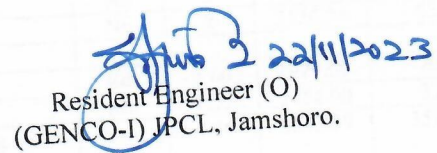 22/11/2023
Resident Engineer (O)
(GENCO-I) JPCL, Jamshoro.